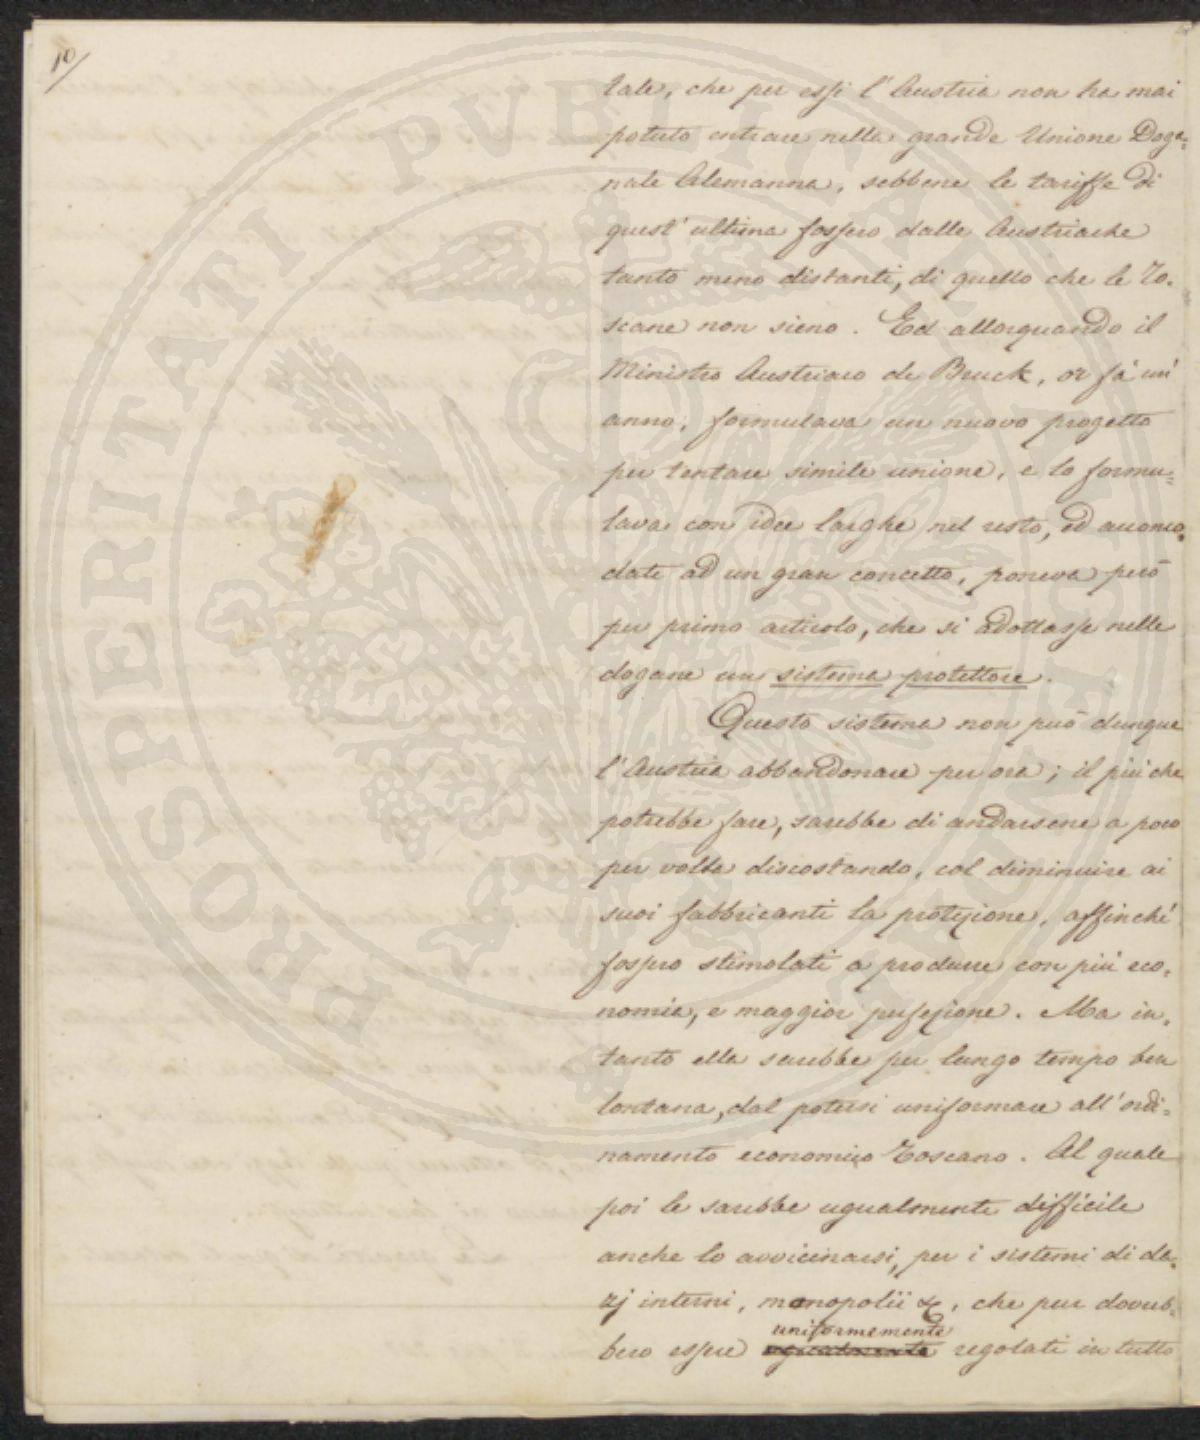 10/
tale, che per essi l'Austria non ha mai
potuto entrare nella grande Unione Doga=
nale Alemanna, sebbene le tariffe di
quest'ultima fossero dalle Austriache
tanto meno distanti, di quello che le To=
scane non sieno. Ed allorquando il
Ministro Austriaco de Bruck, or fà un'
anno, formulava un nuovo progetto
per tentare simile unione, e lo formu=
lava con idee larghe nel resto, ed accomo=
date ad un gran concetto, poneva però
per primo articolo, che si adottasse nelle
dogane un sistema protettore.
Questo sistema non può dunque
l'Austria abbandonare per ora; il più che
potrebbe fare, sarebbe di andarsene a poco
per volta discostando, col diminuire ai
suoi fabbricanti la protezione, affinché
fossero stimolati a produrre con più eco=
nomia, e maggior perfezione. Ma in=
tanto ella sarebbe per lungo tempo ben
lontana, dal potersi uniformare all'ordi=
namento economico Toscano. Al quale
poi le sarebbe ugualmente difficile
anche lo avvicinarsi, per i sistemi di da=
zj interni, monopolii &c, che pur dovreb=
uniformemente
bero essere ugualmente regolati in tutto
PROSPERITATI PUBLICAE